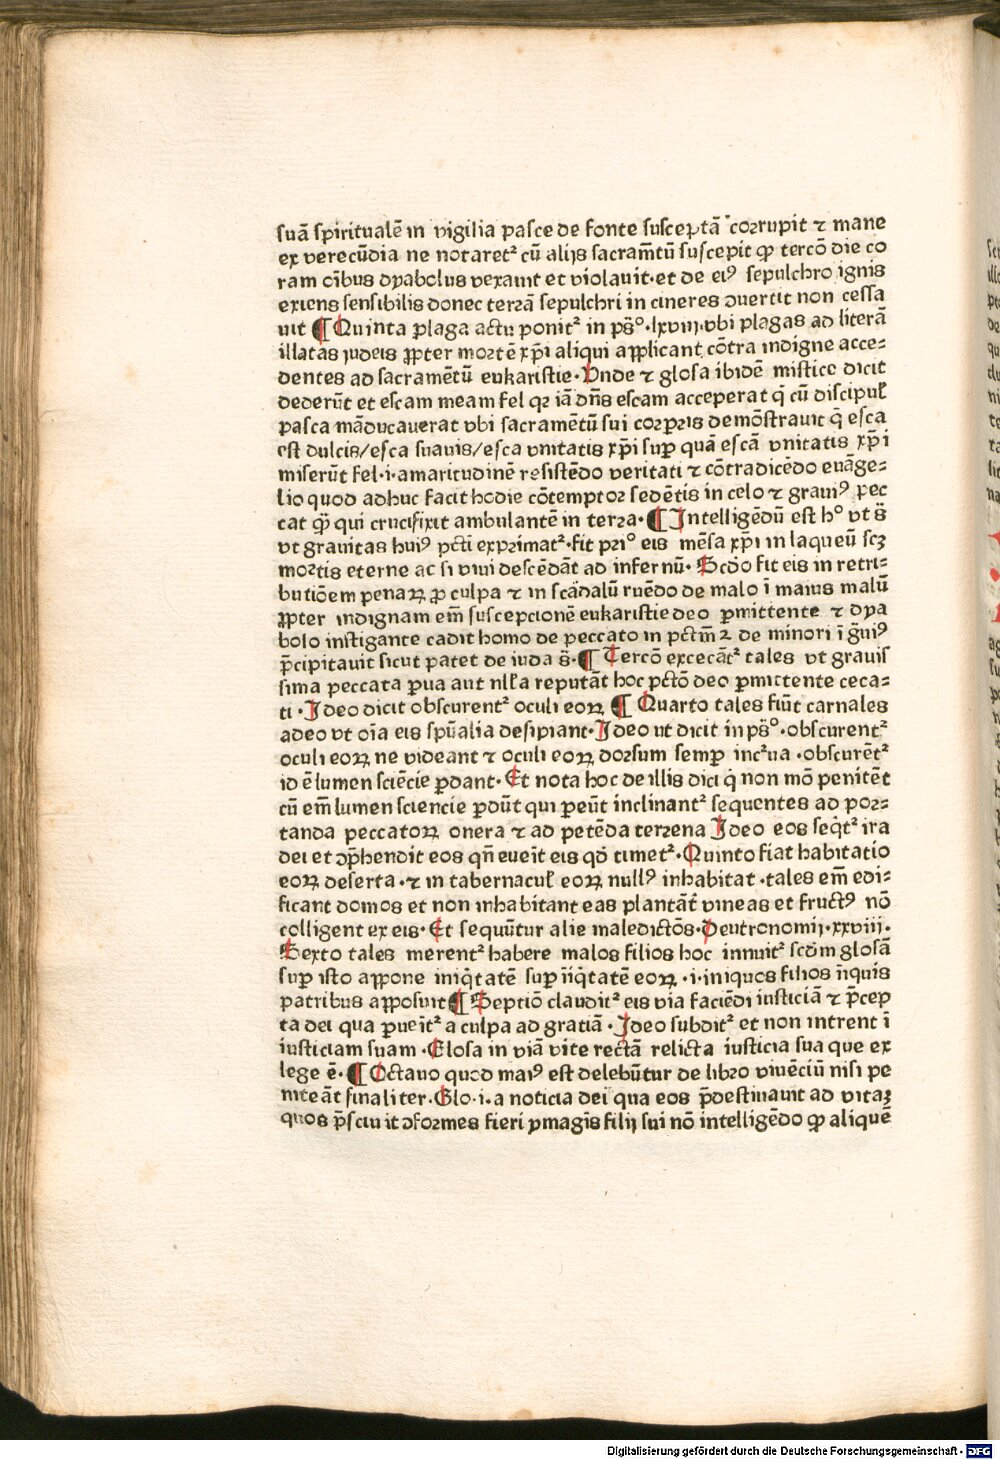 suā spiritualē in vigilia pasce de fonte susceptā corrupit ⁊ mane
ex verecūdia ne notaretᷣ cū alijs sacramētū suscepit ꝙ tercō die co
ram oībus dyabolus vexauit et violauit·et de eiꝰ sepulchro ignis
exiens sensibilis donec terrā sepulchri in cineres ꝯuertit non cessa
uit ¶ Quinta plaga actu ponitᷣ in ps̄º·lxviij·vbi plagas ad literā
illatas iudeis ꝓpter mortē xp̄i aliqui applicant cōtra indigne acce-
dentes ad sacramētū eukaristie·Vnde ⁊ glosa ibidē mistice dicit
dederūt et escam meam fel qꝛ iā dn̄s escam acceperat q̄ cū discipul̄
pasca māducauerat vbi sacramētū sui corꝑis demōstrauit q̄ esca
est dulcis/esca suauis/esca vnitatis xp̄i suꝑ quā escā vnitatis xp̄i
miserūt fel·i·amaritudinē resistēdo veritati ⁊ cōtradicēdo euāge-
lio quod adhuc facit hodie cōtemptor sedētis in celo ⁊ grauiꝰ pec
cat qᷓ qui crucifixit ambulantē in terra·¶ Intelligēdū est hº vt s̄
vt grauitas huiꝰ pcti exprimatᷣ·fit priº eis mēsa xp̄i in laqueū scꝫ
mortis eterne ac si viui descēdāt ad infernū· Scdo fit eis in retri-
butiōem penaꝝ ꝓ culpa ⁊ in scādalū ruēdo de malo ī maius malū
ꝓpter indignam em̄ suscepcionē eukaristie deo ꝑmittente ⁊ dya
bolo instigante cadit homo de peccato in pctm̄ ⁊ de minori ī g̃uiꝰ
p̄cipitauit sicut patet de iuda s̄·¶ Tercō excecātᷣ tales vt grauis
sima peccata ꝑua aut nll̄a reputāt hoc pctō deo ꝑmittente ceca-
ti·Ideo dicit obscurentᷣ oculi eoꝝ ¶ Quarto tales fiūt carnales
adeo vt oīa eis spūalia desipiant·Ideo ut dicit in ps̄º·obscurentᷣ
oculi eoꝝ ne videant ⁊ oculi eoꝝ dorsum semꝑ incᷣua·obscurētᷣ
id ē lumen sciēcie ꝑdant·Et nota hoc de illis dici q̄ non mō penitēt
cū em̄ lumen sciencie ꝑdūt qui ꝑeūt inclinantᷣ sequentes ad por-
tanda peccatoꝝ onera ⁊ ad petēda terrena Ideo eos seq̄tᷣ ira
dei et ꝯp̄hendit eos qn̄ eueīt eis qd̄ timetᷣ·Quinto fiat habitatio
eoꝝ deserta·⁊ in tabernacul̄ eoꝝ nullꝰ inhabitat·tales em̄ edi-
ficant domos et non inhabitant eas plantāt vineas et fructꝰ nō
colligent ex eis·Et sequūtur alie maledictōs·Deutronomij·xxviii·
Sexto tales merentᷣ habere malos filios hoc innuitᷣ scdm glosā
suꝑ isto appone iniq̄tatē suꝑ īiq̄tatē eoꝝ·i·iniquos filios īiquis
patribus apposuit¶ Septiō clauditᷣ eis via faciēdi iusticiā ⁊ p̄cep
ta dei qua ꝑueītᷣ a culpa ad gratiā·Ideo subditᷣ et non intrent ī
iusticiam suam·Glosa in viā vite rectā relicta iusticia sua que ex
lege ē·¶ Octauo quod maiꝰ est delebūtur de libro viuēciū nisi pe
niteāt finaliter·Glo·i·a noticia dei qua eos p̄destinauit ad vitaꝫ
quos p̄sciuit ꝯformes fieri ymagīs filij sui nō intelligēdo ꝙ aliquē
Digitalisierung gefördert durch die Deutsche Forschungsgemeinschaft - DFG